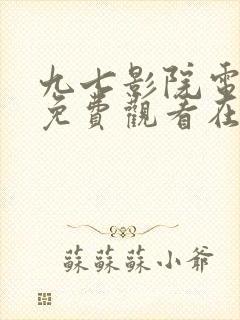 九七影院電
免費觀看在
蘇蘇蘇小爺